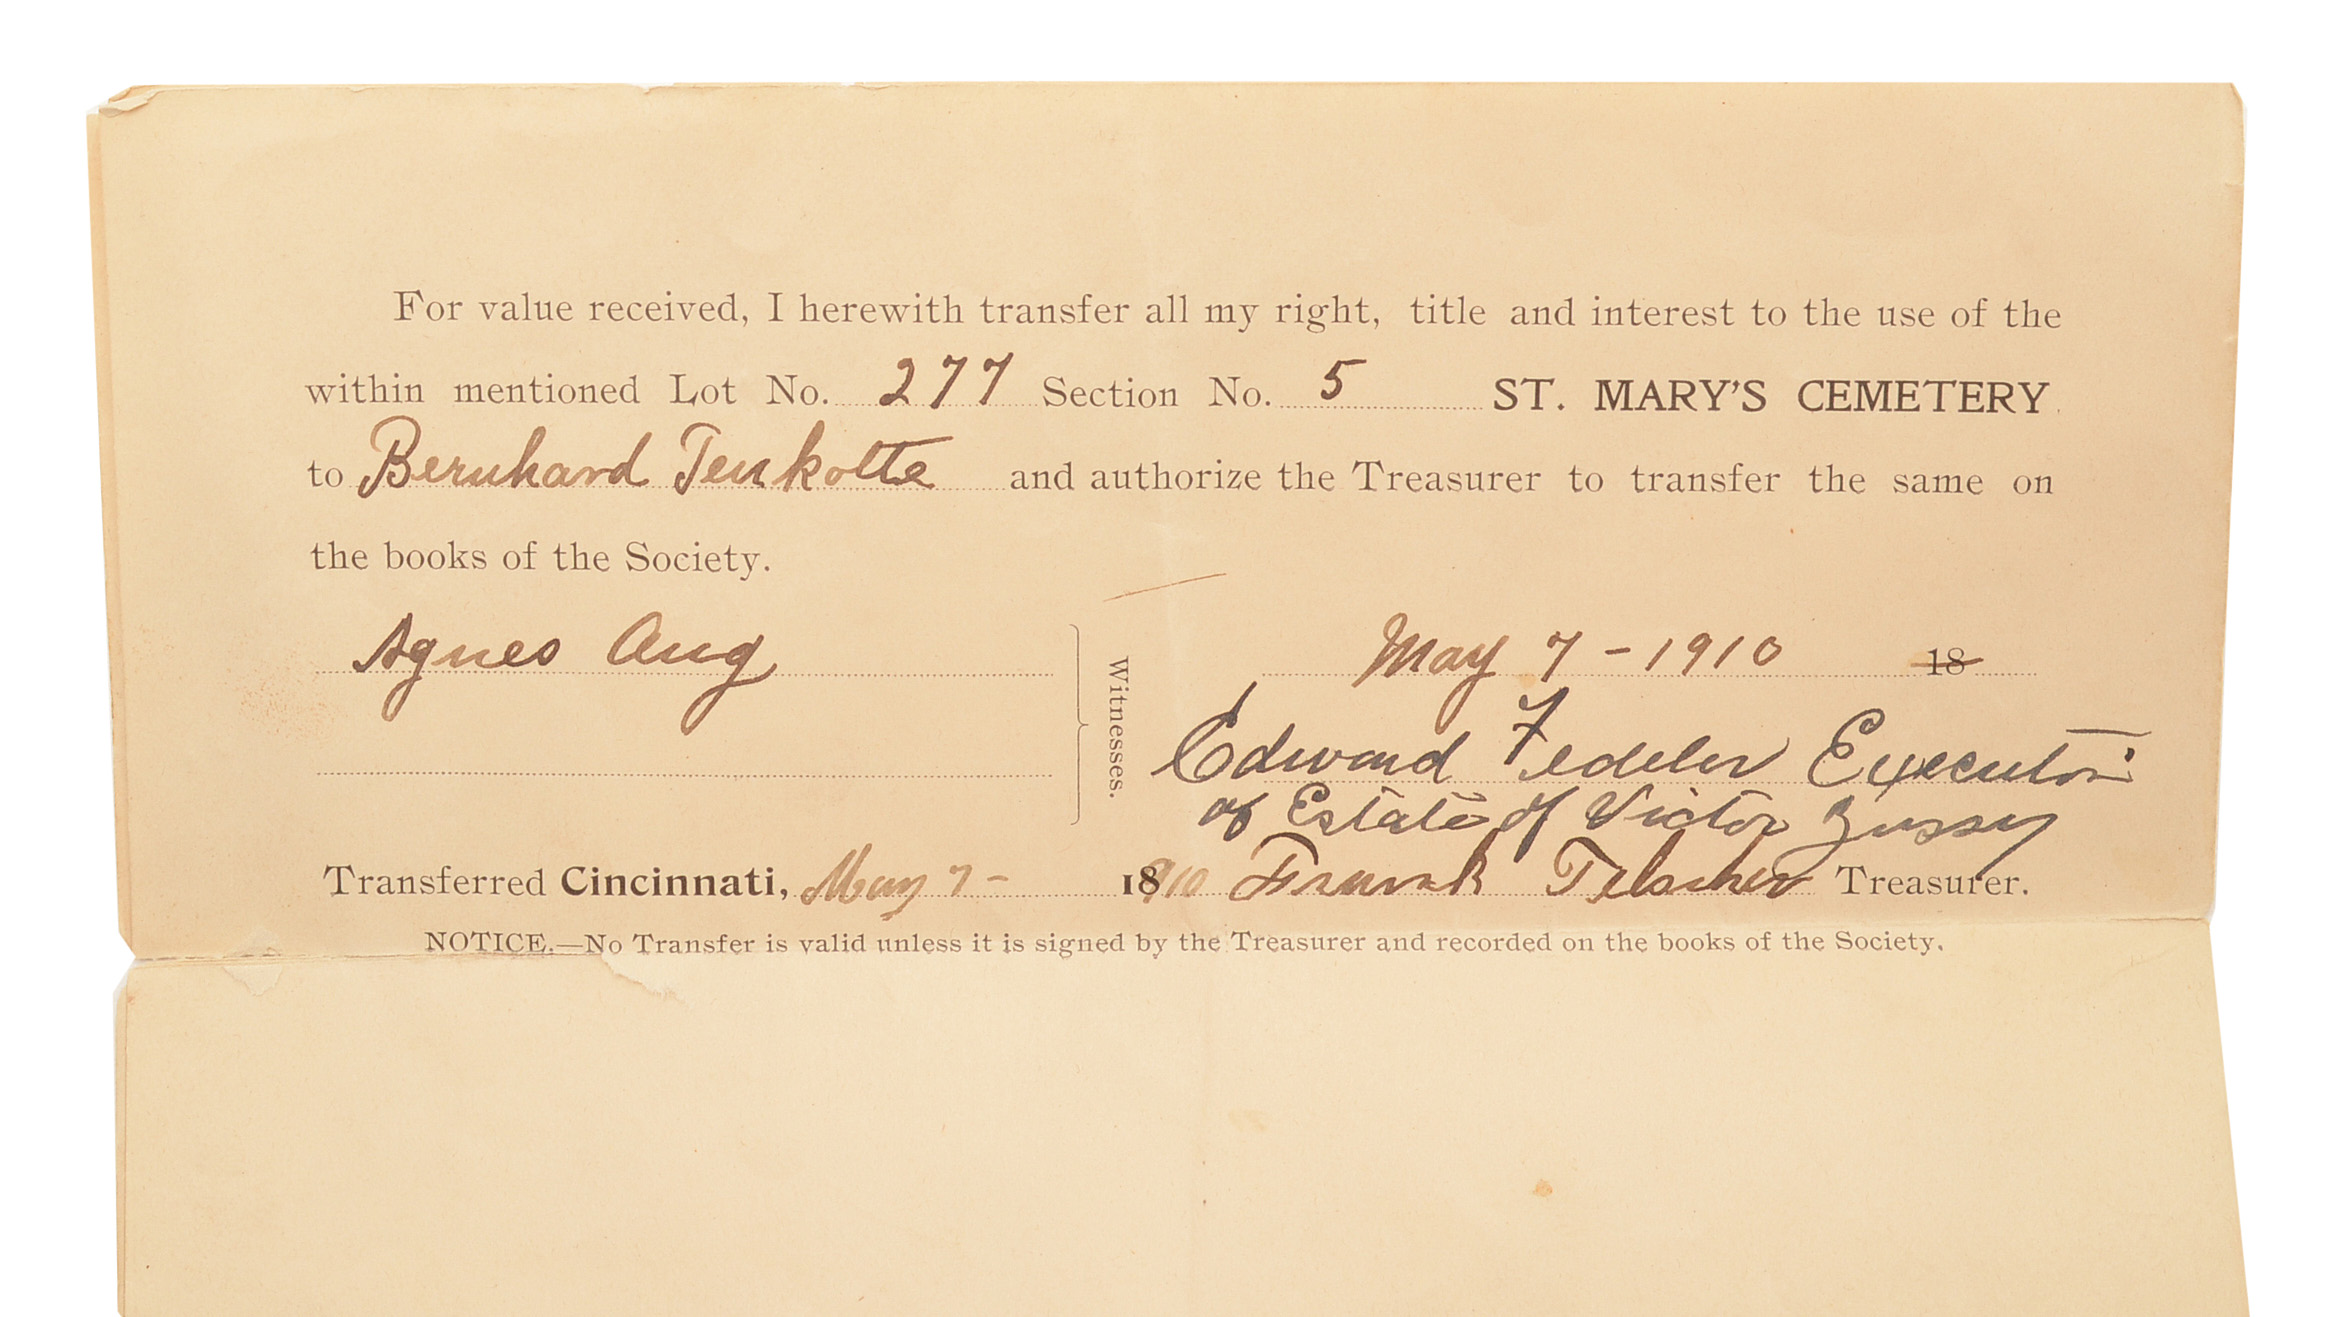 For value received, I herewith transfer all my right, title and interest to the use of the
within mentioned Lot No. 277 Section No. 5 ST. MARY'S CEMETERY
to Bernhard Tenkotte and authorize the Treasurer to transfer the same on
the books of the Society.
Agnes Aug
Witnesses.
May 7 - 1910 18
Edward Fedeler Executor
of Estate of Victor
Transferred Cincinnati, May 7 - 18 910 Frank Treasurer.
NOTICE.—No Transfer is valid unless it is signed by the Treasurer and recorded on the books of the Society.